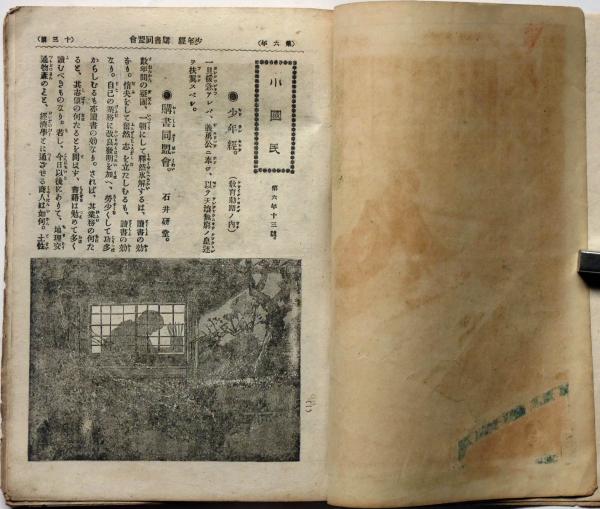 (年六第)
會盟同書購　經年少
(號三十)
小國民
第六年十三號。
●少年經。(教育勅語ノ內)
一旦緩急アレバ、義勇公ニ奉ジ、以テ天壤無窮ノ皇運
ヲ扶翼スベシ。
●購書同盟會。　石井研堂。
數年間の疑團、一朝にして釋然氷解するは、讀書の効
なり。懦夫をして奮然、志を立たしむるも、讀書の効
なり。自己の業務に改良發明を加へ、勞少くして功多
からしむるも亦讀書の効なり。されば、其業務の何た
ると、其志望の何たるとを問はず、書籍は勉めて多く
讀むべきものなり。若し、今日以後にありて、地理交
通物產のこと、經濟學とに通ぜざる商人は如何。土